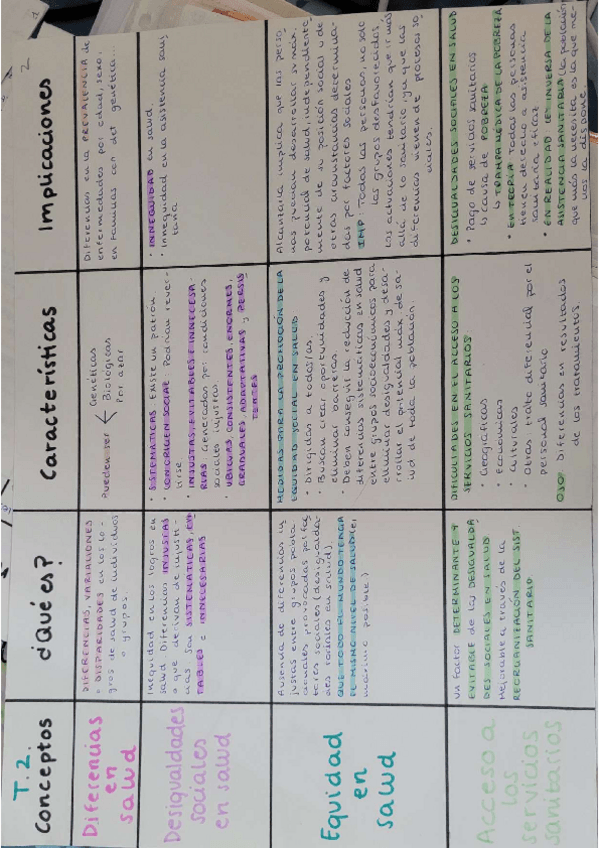 T.2.
Conceptos
¿Qué es?
Características
Implicaciones
2
Diferencias
en
salud
DIFERENCIAS, VARIACIONES
o DISPARIDADES en los lo-
gros de salud de individuos
o grupos.
Pueden ser
Genéticas
Biológicas
Por azar
Diferencias en la PREVALENCIA de
enfermedades por edad, sexo,
en familias con det genética...
Desigualdades
sociales
en salud
Inequidad en los logros en
salud. Diferencias INJUSTAS
o que derivan de injusti-
cias. Son SISTEMÁTICAS, EVI-
TABLES e INNECESARIAS
· SISTEMÁTICAS: Existe un patrón
· CON ORIGEN SOCIAL: Podrían rever-
tirse
· INJUSTAS, EVITABLES E INNECESA-
RIAS: Generadas por condiciones
sociales injustas.
· UBICUAS, CONSISTENTES, ENORMES,
GRADUALES, ADAPTATIVAS y PERSIS
TENTES
· INNEQUIDAD en salud.
· Innequidad en la asistencia sani
taria
Equidad
en
salud
Ausencia de diferencias in
justas entre grupos pobla
cionales provocadas por fac
tores sociales (desigualda-
des sociales en salud).
QUE TODO EL MUNDO TENGA
EL MISMO NIVEL DE SALUD (el
máximo posible)
MEDIDAS PARA LA PROMOCIÓN DE LA
EQUIDAD SOCIAL EN SALUD
· Dirigidas a todos/as.
· Buscan crear oportunidades y
eliminar barreras
· Deben conseguir la reducción de
diferencias sistemáticas en salud
entre grupos socioeconómicos para
eliminar desigualdades y desa-
rrollar el potencial máx. de sa-
lud de toda la población.
Alcanzarla implica que las perso-
nas puedan desarrollar su máx.
potencial de salud independiente
mente de su posición social u de
otras circunstancias determina-
das por factores sociales
IMP: Todas las personas, no solo
los grupos desfavorecidos.
Las actuaciones tendrían que ir más
allá de lo sanitario, ya que las
diferencias vienen de procesos so
ciales.
Acceso a
los
servicios
sanitarios
Un factor DETERMINANTE Y
EVITABLE de las DESIGUALDA
DES SOCIALES EN SALUD
Mejorable a través de la
REORGANIZACIÓN DEL SIST.
SANITARIO
DIFICULTADES EN EL ACCESO A LOS
SERVICIOS SANITARIOS
· Geográficas
· Económicas
· Culturales
· Otras: trato diferencial por el
personal sanitario
OJO: Diferencias en resultados
de los tratamientos
DESIGUALDADES SOCIALES EN SALUD
· Pago de servicios sanitarios
↳ causa de POBREZA
↳ TRAMPA MÉDICA DE LA POBREZA
· EN TEORÍA: Todas las personas
tienen derecho a asistencia
sanitaria eficaz
· EN REALIDAD: LEY INVERSA DE LA
ASISTENCIA SANITARIA (la población
que más la necesita es la que me
nos la dispone.